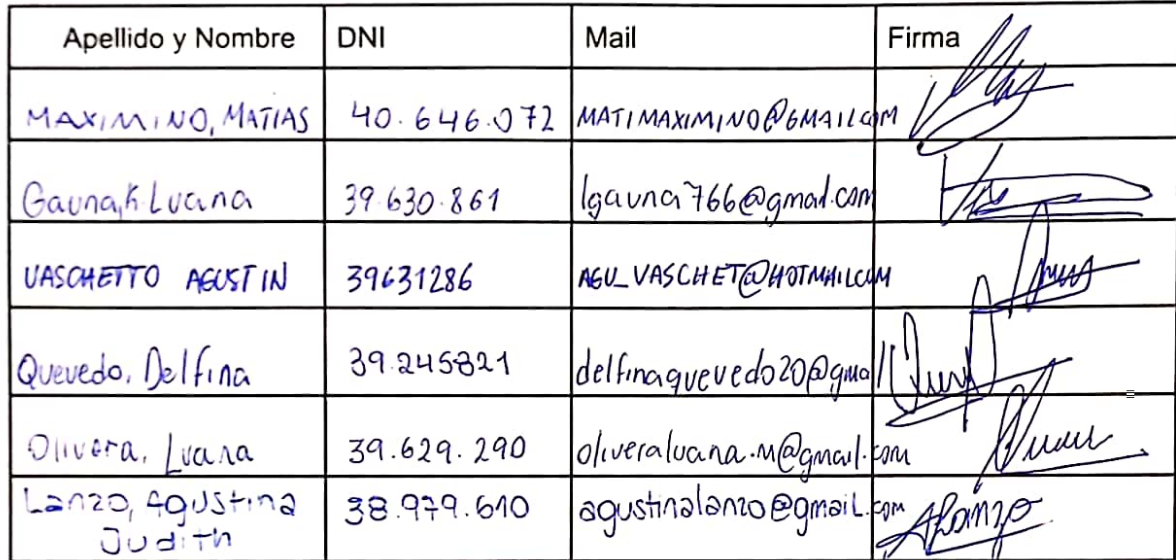 Apellido y Nombre DNI Mail Firma
MAXIMINO, MATIAS 40.646.072 MATIMAXIMINO@GMAIL.COM
Gauna, K. Luana 39.630.861 lgauna766@gmail.com
VASCHETTO AGUSTIN 39631286 AGU_VASCHET@HOTMAIL.COM
Quevedo, Delfina 39.245821 delfinaquevedo20@gmail
Olivera, Luana 39.629.290 oliveraluana.m@gmail.com
Lanzo, Agustina 38.979.610 agustinalanzo@gmail.com ALanzo
Judith